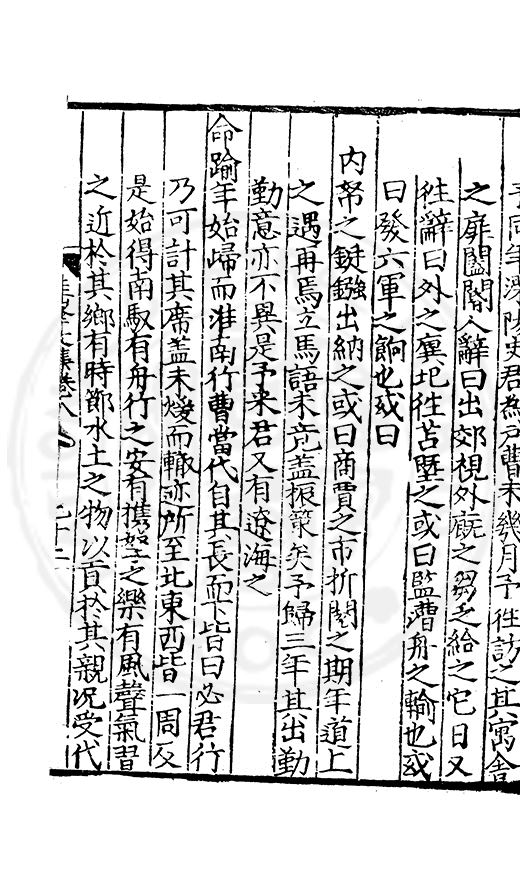 同年濮陽史君為戶曹未幾月予徃訪之其寓舍
之扉闔閽人辭曰出郊視外廐之芻乏給之它日又
徃辭曰外之廩圯徃苫塈之或曰監漕舟之輸也或
曰發六軍之餉也或曰
内帑之鋌鏹出納之或曰商賈之市折閱之期年道上
之遇再焉立馬語未竟盖振策矣予歸三年其出勤
勤意亦不異是予来君又有遼海之
命踰年始歸而淮南行曹當代自其長而下皆曰必君行
乃可計其席盖未煖而轍亦所至北東西皆一周反
是始得南馭有舟行之安有攜孥之樂有風聲氣習
之近扵其鄉有時節水土之物以貢扵其親况受代
文集卷八